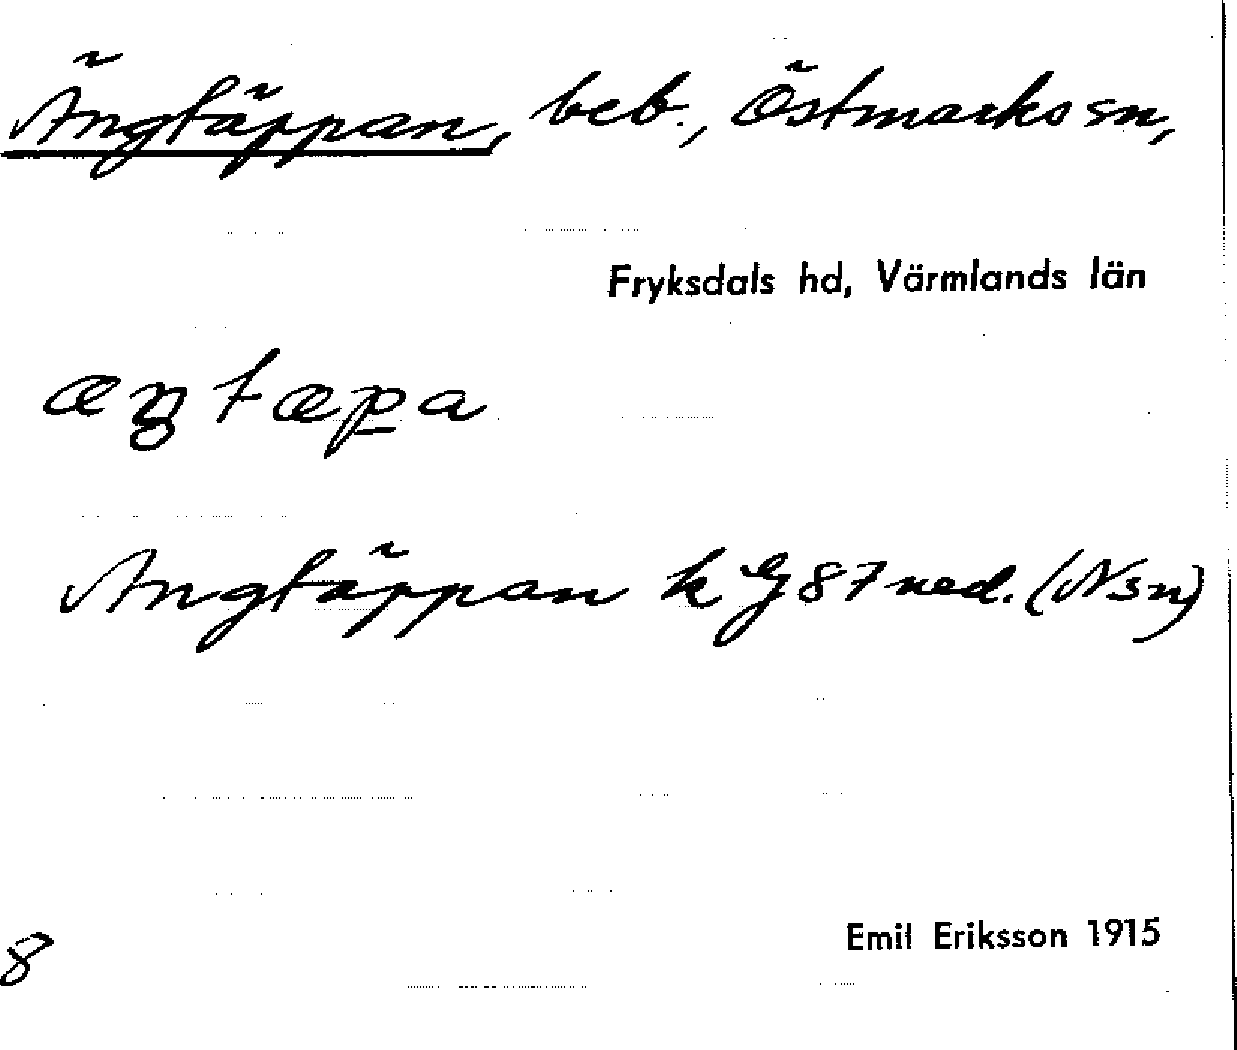 Ängtäppan, beb., Östmarks sn,
Fryksdals hd, Värmlands län
æŋtæpa
Ängtäppan k G 87 ned. (N sn)
Emil Eriksson 1915
8